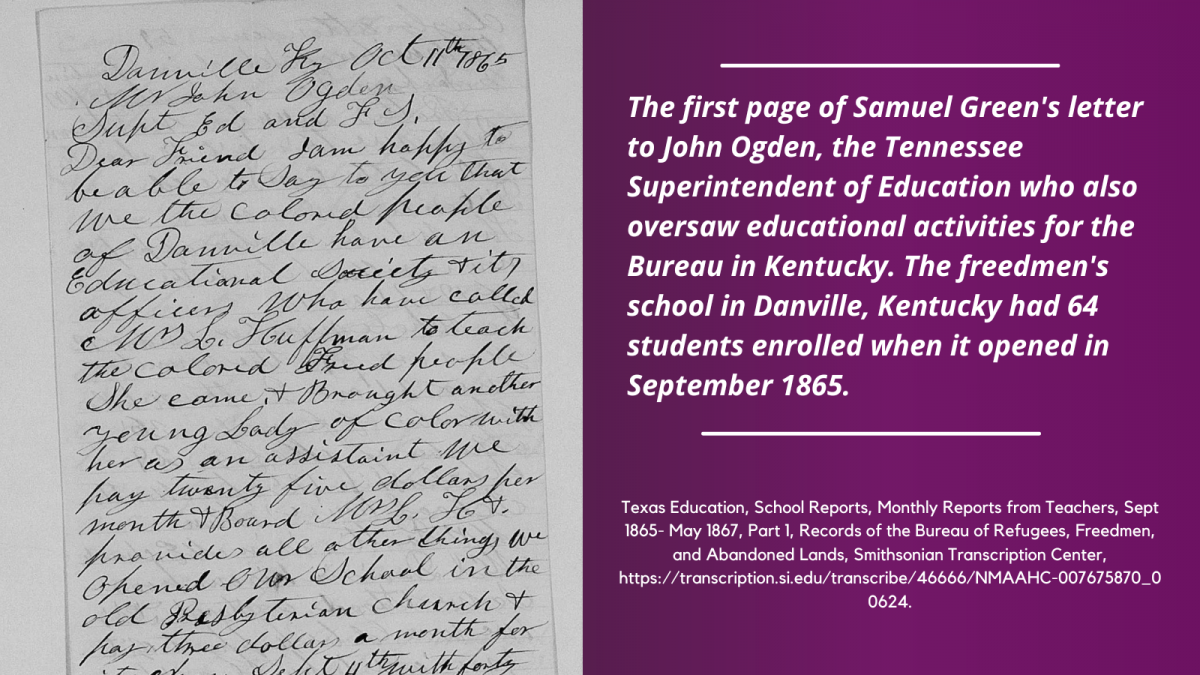 Danville Ky Oct 11th 1865
Mr John Ogden
Supt Ed and F S.
Dear Friend I am happy to
be able to Say to you that
We the colored people
of Danville have an
Educational Society & its
officers Who have called
Mrs L. Huffman to teach
the colored Freed people
She came & Brought another
young Lady of color with
her as an assistaint We
pay twenty five dollars per
month & Board Mrs L. H &.
provides all other things We
Opened Our School in the
old Presbyterian Church &
pay three dollars a month for
Sept 4th with forty
The first page of Samuel Green's letter
to John Ogden, the Tennessee
Superintendent of Education who also
oversaw educational activities for the
Bureau in Kentucky. The freedmen's
school in Danville, Kentucky had 64
students enrolled when it opened in
September 1865.
Texas Education, School Reports, Monthly Reports from Teachers, Sept
1865- May 1867, Part 1, Records of the Bureau of Refugees, Freedmen,
and Abandoned Lands, Smithsonian Transcription Center,
https://transcription.si.edu/transcribe/46666/NMAAHC-007675870_0
0624.